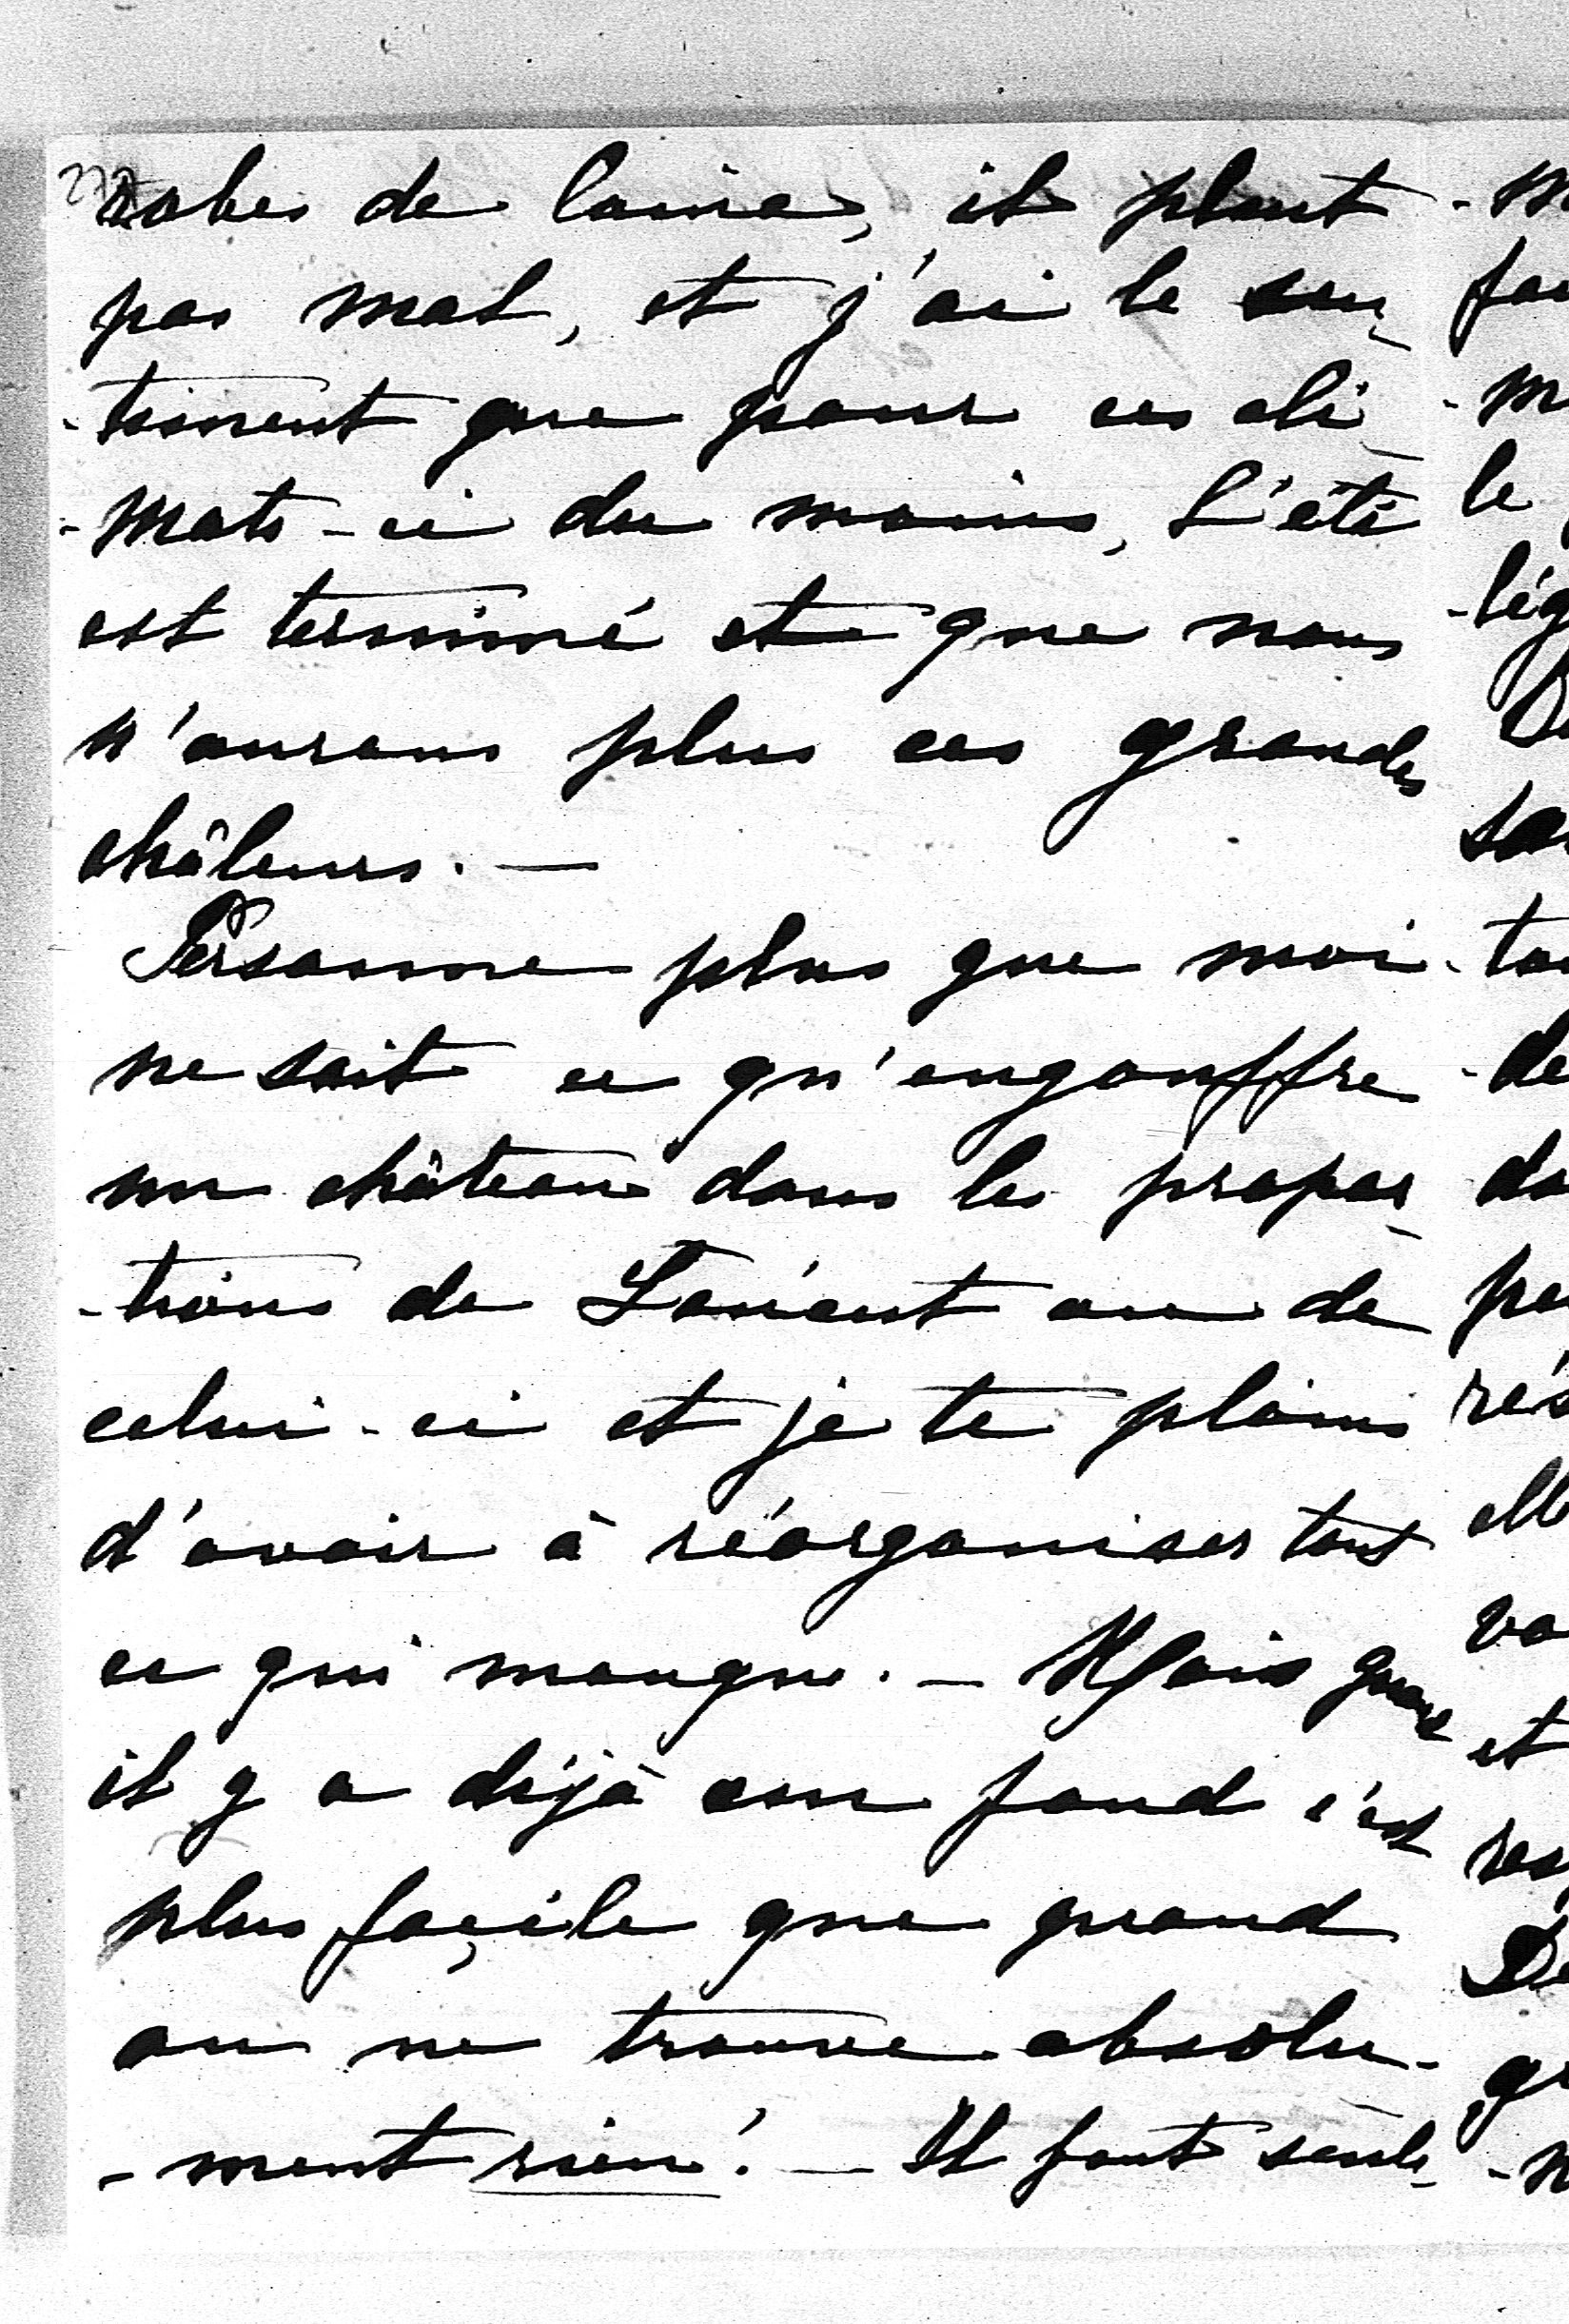 robes de laine, il pleut
pas mal, et j'ai le sen
-timent que pour ces cli
-mats-ci du moins, l'été
est terminé et que nous
n'aurons plus ces grandes
châleurs. —
Personne plus que moi
ne sait ce qu'engouffre
un château dans les propor
-tions de Lanient ou de
celui-ci et je te plains
d'avoir à réorganiser tout
ce qui manque. — Mais quand
il y a déjà un fond c'est
plus façile que quand
on ne trouve absolu-
-ment rien! — Il faut seule